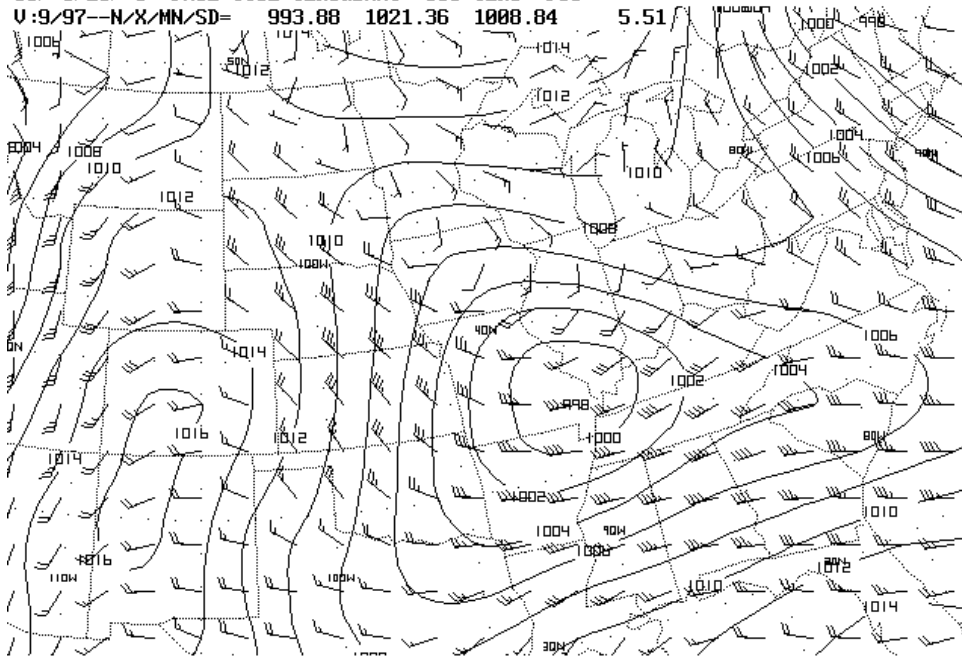 V:9/97--N/X/MN/SD= 993.88 1021.36 1008.84 5.51
1000 998
1006 1014 1014
50N 1012
1002
1012
1004
1008
1006
80W
1010 1010
1012
1008
1010
100W
40N
1006
1014
1004
1002
998
1016 1012 1000 80W
1014
1002
1010
1004
90W
1016 1006 30N
1012
110W 100W 1010
1014
30N